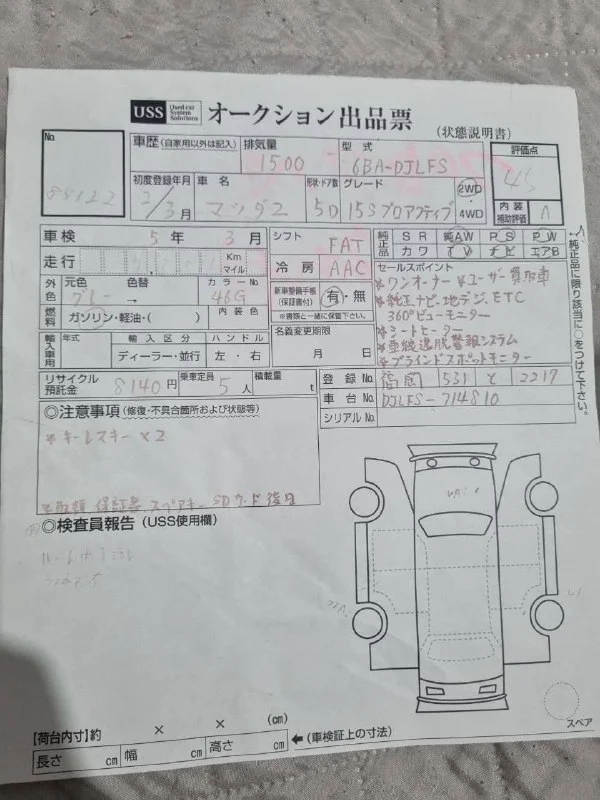 USS Used car System Solutions オークション出品票 (状態説明書)
No.
車歴 (自家用以外は記入) 排気量 1500 型式 6BA-DJLFS 評価点
初度登録年月 2/3月 車名 マツダ2 形状・ドア数 5D グレード 15S プロアクティブ 2WD 4WD 内装補助評価 A
車検 5年 3月 シフト FAT 純正品 SR 純AW PS PW
カワ TV ナビ エアB
走行 Km マイル 冷房 AAC
セールスポイント
*ワンオーナー *ユーザー買取車
*純正ナビ、地デジ、ETC
360°ビューモニター
*シートヒーター
*車線逸脱警報システム
*ブラインドスポットモニター
外色 元色 グレー → 色替 カラーNo. 46G 新車整備手帳(保証書付) 有・無
※書類と一緒に保管下さい。
燃料 ガソリン・軽油・( ) 内装色 名義変更期限
月 日
輸入車用 年式 輸入区分 ハンドル
ディーラー・並行 左・右
純正品に限り該当に○をつけて下さい。
リサイクル預託金 8140円 乗車定員 5人 積載量 t 登録No. 福岡 531 と 2217
車台No. DJLFS-714810
シリアルNo.
◎注意事項 (修復・不具合箇所および状態等)
*キーレスキー×2
*取説 保証書 スペアキー SDカード後日
◎検査員報告 (USS使用欄)
スペア
【荷台内寸】約 × × (cm)
長さ cm 幅 cm 高さ cm ←(車検証上の寸法)